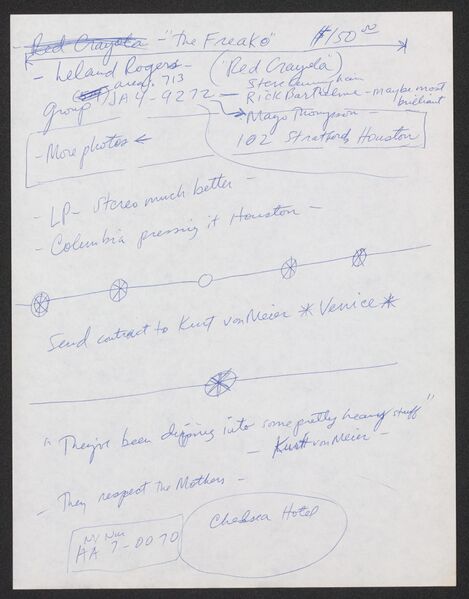 Red Crayola - "The Freako" $150.00
- Leland Rogers - (Red Crayola)
area 713 Steve Cunningham
Group JA 4-9272 - Rick Barthelme - maybe most brilliant
Mayo Thompson -
102 Stratford, Houston
- More photos ←
- LP - stereo much better -
- Columbia pressing it Houston -
Send contract to Kurt von Meier * Venice *
"They've been dipping into some pretty heavy stuff"
- Kurt von Meier -
- They respect the Mothers -
NY Num
AA 7-0070
Chelsea Hotel